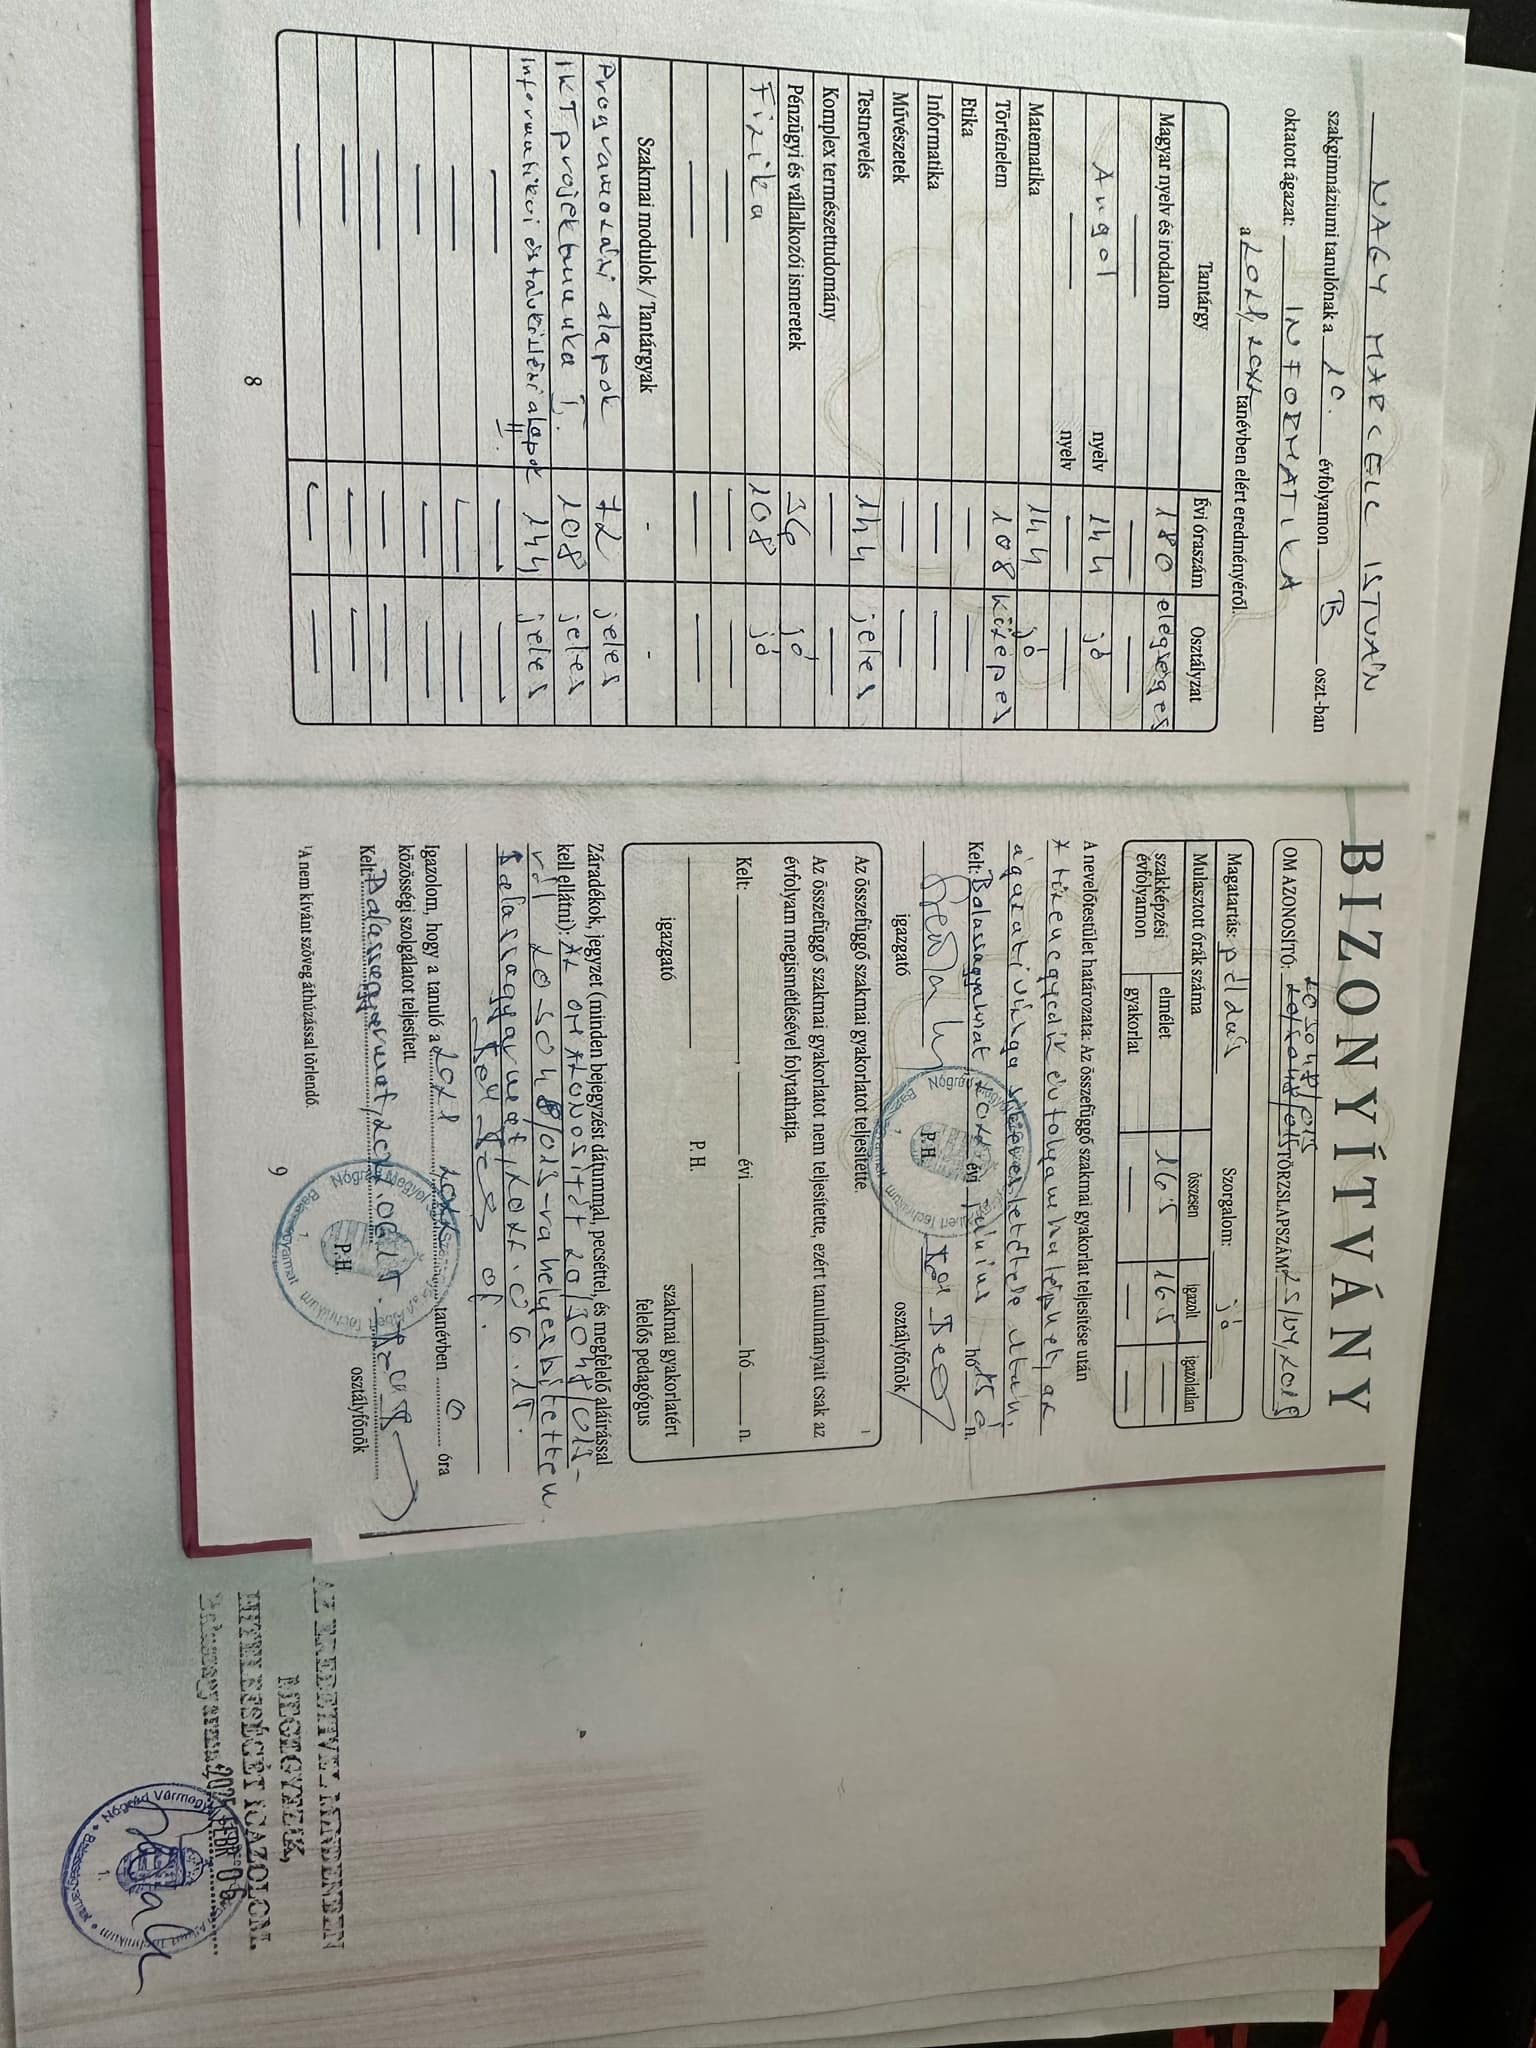 NAGY MARCELL ISTVÁN
szakgimnáziumi tanulónak a 10. évfolyamon B oszt.-ban
oktatott ágazat: INFORMATIKA
a 2021/2022 tanévben elért eredményéről.
Tantárgy Évi óraszám Osztályzat
Magyar nyelv és irodalom 180 elégséges
— — —
Angol nyelv 144 jó
— nyelv — —
Matematika 144 jó
Történelem 108 közepes
Etika — —
Informatika — —
Művészetek — —
Testnevelés 144 jeles
Komplex természettudomány — —
Pénzügyi és vállalkozói ismeretek 36 jó
Fizika 108 jó
— — —
— — —
Szakmai modulok / Tantárgyak - -
Programozási alapok 72 jeles
IKT projektmunka I. 108 jeles
Informatikai és távközlési alapok II. 144 jeles
— — —
— — —
— — —
— — —
— — —
— — —
8
BIZONYÍTVÁNY
OM AZONOSÍTÓ: TÖRZSLAPSZÁM:
Magatartás: példás Szorgalom: jó
Mulasztott órák száma összesen igazolt igazolatlan
szakképzési évfolyamon elmélet 165 165 —
gyakorlat — — —
A nevelőtestület határozata: Az összefüggő szakmai gyakorlat teljesítése után
a tizenegyedik évfolyamba léphet, az
ágazati vizsga sikeres letétele után.
Kelt: Balassagyarmat, 2022 évi június hó 15 n.
P. H.
igazgató osztályfőnök
Az összefüggő szakmai gyakorlatot teljesítette.
Az összefüggő szakmai gyakorlatot nem teljesítette, ezért tanulmányait csak az
évfolyam megismétlésével folytathatja.
1
Kelt: , évi hó n.
P. H.
igazgató szakmai gyakorlatért
felelős pedagógus
Záradékok, jegyzet (minden bejegyzést dátummal, pecséttel, és megfelelő aláírással
kell ellátni): Az om azonosítót
helyesbítettem.
Balassagyarmat, 2022. 06. 15.
of.
Igazolom, hogy a tanuló a 2021 2022 tanévben 0 óra
közösségi szolgálatot teljesített.
Kelt: Balassagyarmat, 2022. 06. 15.
P. H.
osztályfőnök
¹A nem kívánt szöveg áthúzással törlendő.
9
AZ EREDETIVEL MINDENBEN
MEGEGYEZIK,
HITELESSÉGÉT IGAZOLOM.
Balassagyarmat, 2025 FEBR 06.